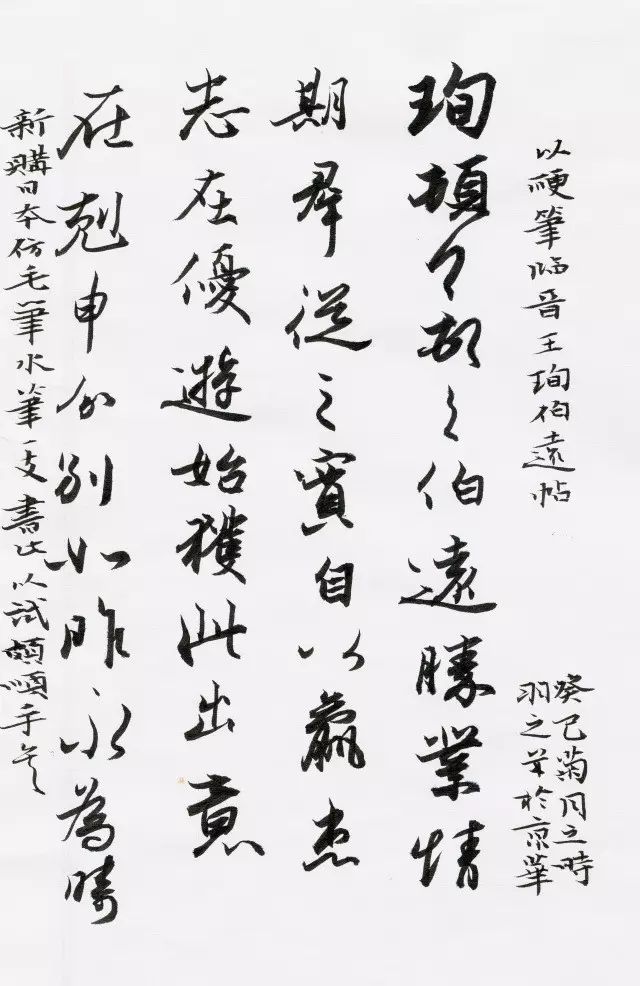 以硬筆臨晋王珣伯遠帖
癸巳菊月之時
羽之并於京華
珣頓々首々伯遠勝業情
期群從之寶自以羸患
志在優遊始獲此出意
在剋申分別如昨永為疇
新購日本仿毛筆水筆一支書此以試頗順手矣